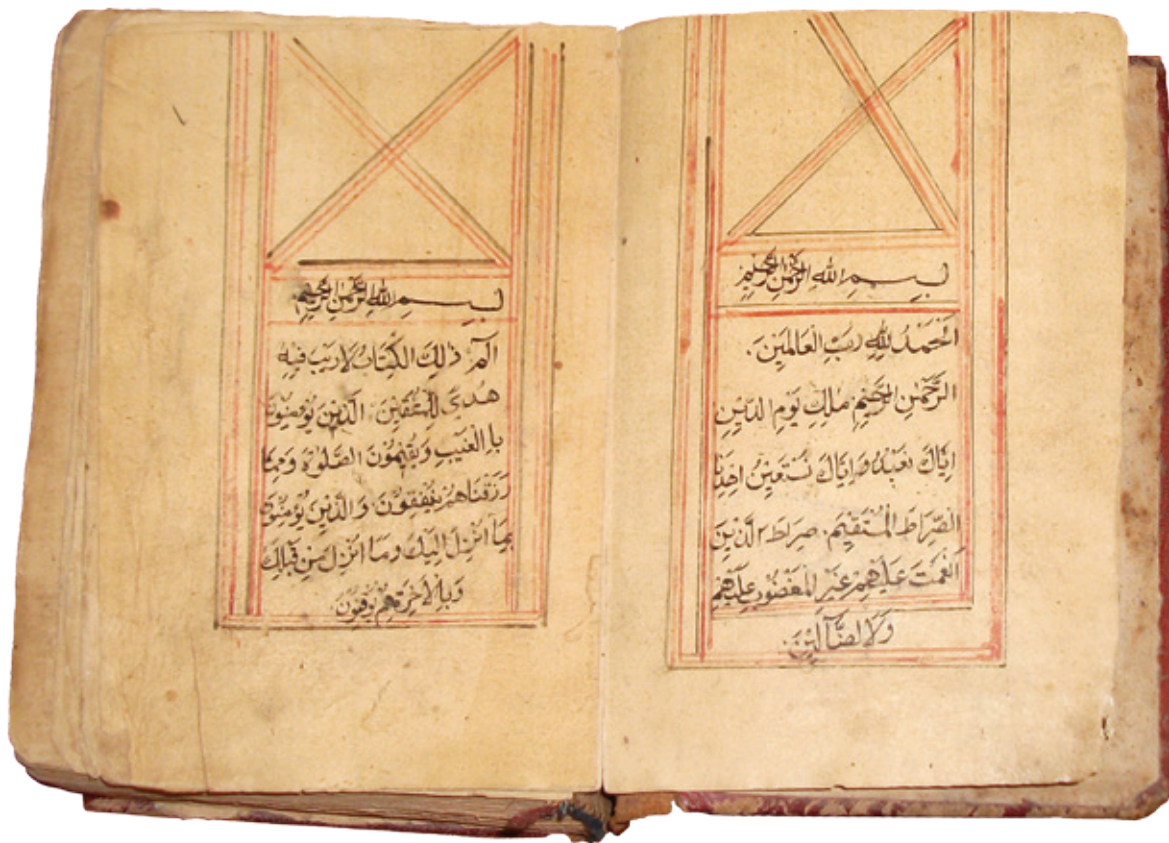 بِسْمِ اللهِ الرَّحْمٰنِ الرَّحِيْمِ
اَلْحَمْدُ لِلّٰهِ رَبِّ الْعَالَمِيْنَ.
الرَّحْمٰنِ الرَّحِيْمِ. مٰلِكِ يَوْمِ الدِّيْنِ
اِيَّاكَ نَعْبُدُ وَاِيَّاكَ نَسْتَعِيْنُ اِهْدِنَا
الصِّرَاطَ الْمُسْتَقِيْمَ. صِرَاطَ الَّذِيْنَ
اَنْعَمْتَ عَلَيْهِمْ غَيْرِ الْمَغْضُوْبِ عَلَيْهِمْ
وَلَا الضَّآلِّيْنَ.
بِسْمِ اللهِ الرَّحْمٰنِ الرَّحِيْمِ
الٓمّٓ. ذٰلِكَ الْكِتَابُ لَا رَيْبَ فِيْهِ
هُدًى لِلْمُتَّقِيْنَ. الَّذِيْنَ يُؤْمِنُوْنَ
بِاالْغَيْبِ وَيُقِيْمُوْنَ الصَّلٰوةَ وَمِمَّا
رَزَقْنَاهُمْ يُنْفِقُوْنَ. وَالَّذِيْنَ يُؤْمِنُوْنَ
بِمَا اُنْزِلَ اِلَيْكَ وَمَا اُنْزِلَ مِنْ قَبْلِكَ
وَبِالْاٰخِرَةِ هُمْ يُوْقِنُوْنَ.